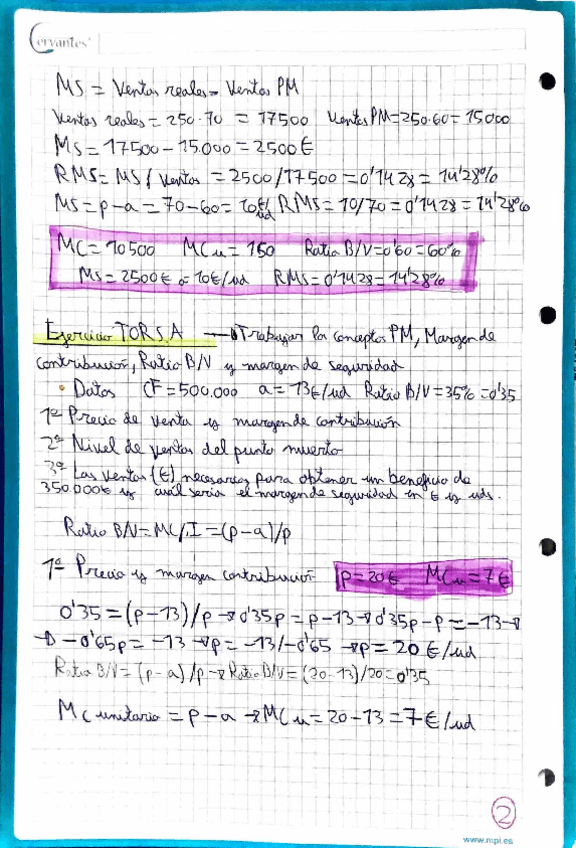 Cervantes
MS = Ventas reales - Ventas PM
Ventas reales = 250·70 = 17500 Ventas PM = 250·60 = 15000
MS = 17500 - 15.000 = 2500€
RMS = MS / Ventas = 2500/17500 = 0'1428 = 14'28%
MS = p-a = 70-60 = 10€/ud RMS = 10/70 = 0'1428 = 14'28%
MC = 10500 MCu = 150 Ratio B/V = 0'60 = 60%
MS = 2500€ o 10€/ud RMS = 0'1428 = 14'28%
Ejercicio TORSA → Trabajar los conceptos PM, Margen de
contribución, Ratio B/V y margen de seguridad
• Datos CF = 500.000 a = 13€/ud Ratio B/V = 35% = 0'35
1º Precio de venta y margen de contribución
2º Nivel de ventas del punto muerto
3º Las ventas (€) necesarias para obtener un beneficio de
350.000€ y cuál sería el margen de seguridad en € y uds.
Ratio B/V = MC/I = (p-a)/p
1º Precio y margen contribución p = 20€ MCu = 7€
0'35 = (p-13)/p → 0'35p = p-13 → 0'35p - p = -13 →
→ -0'65p = -13 → p = -13/-0'65 → p = 20 €/ud
Ratio B/V = (p-a)/p → Ratio B/V = (20-13)/20 = 0'35
MC unitario = p-a → MCu = 20-13 = 7€/ud
2
www.mpl.es